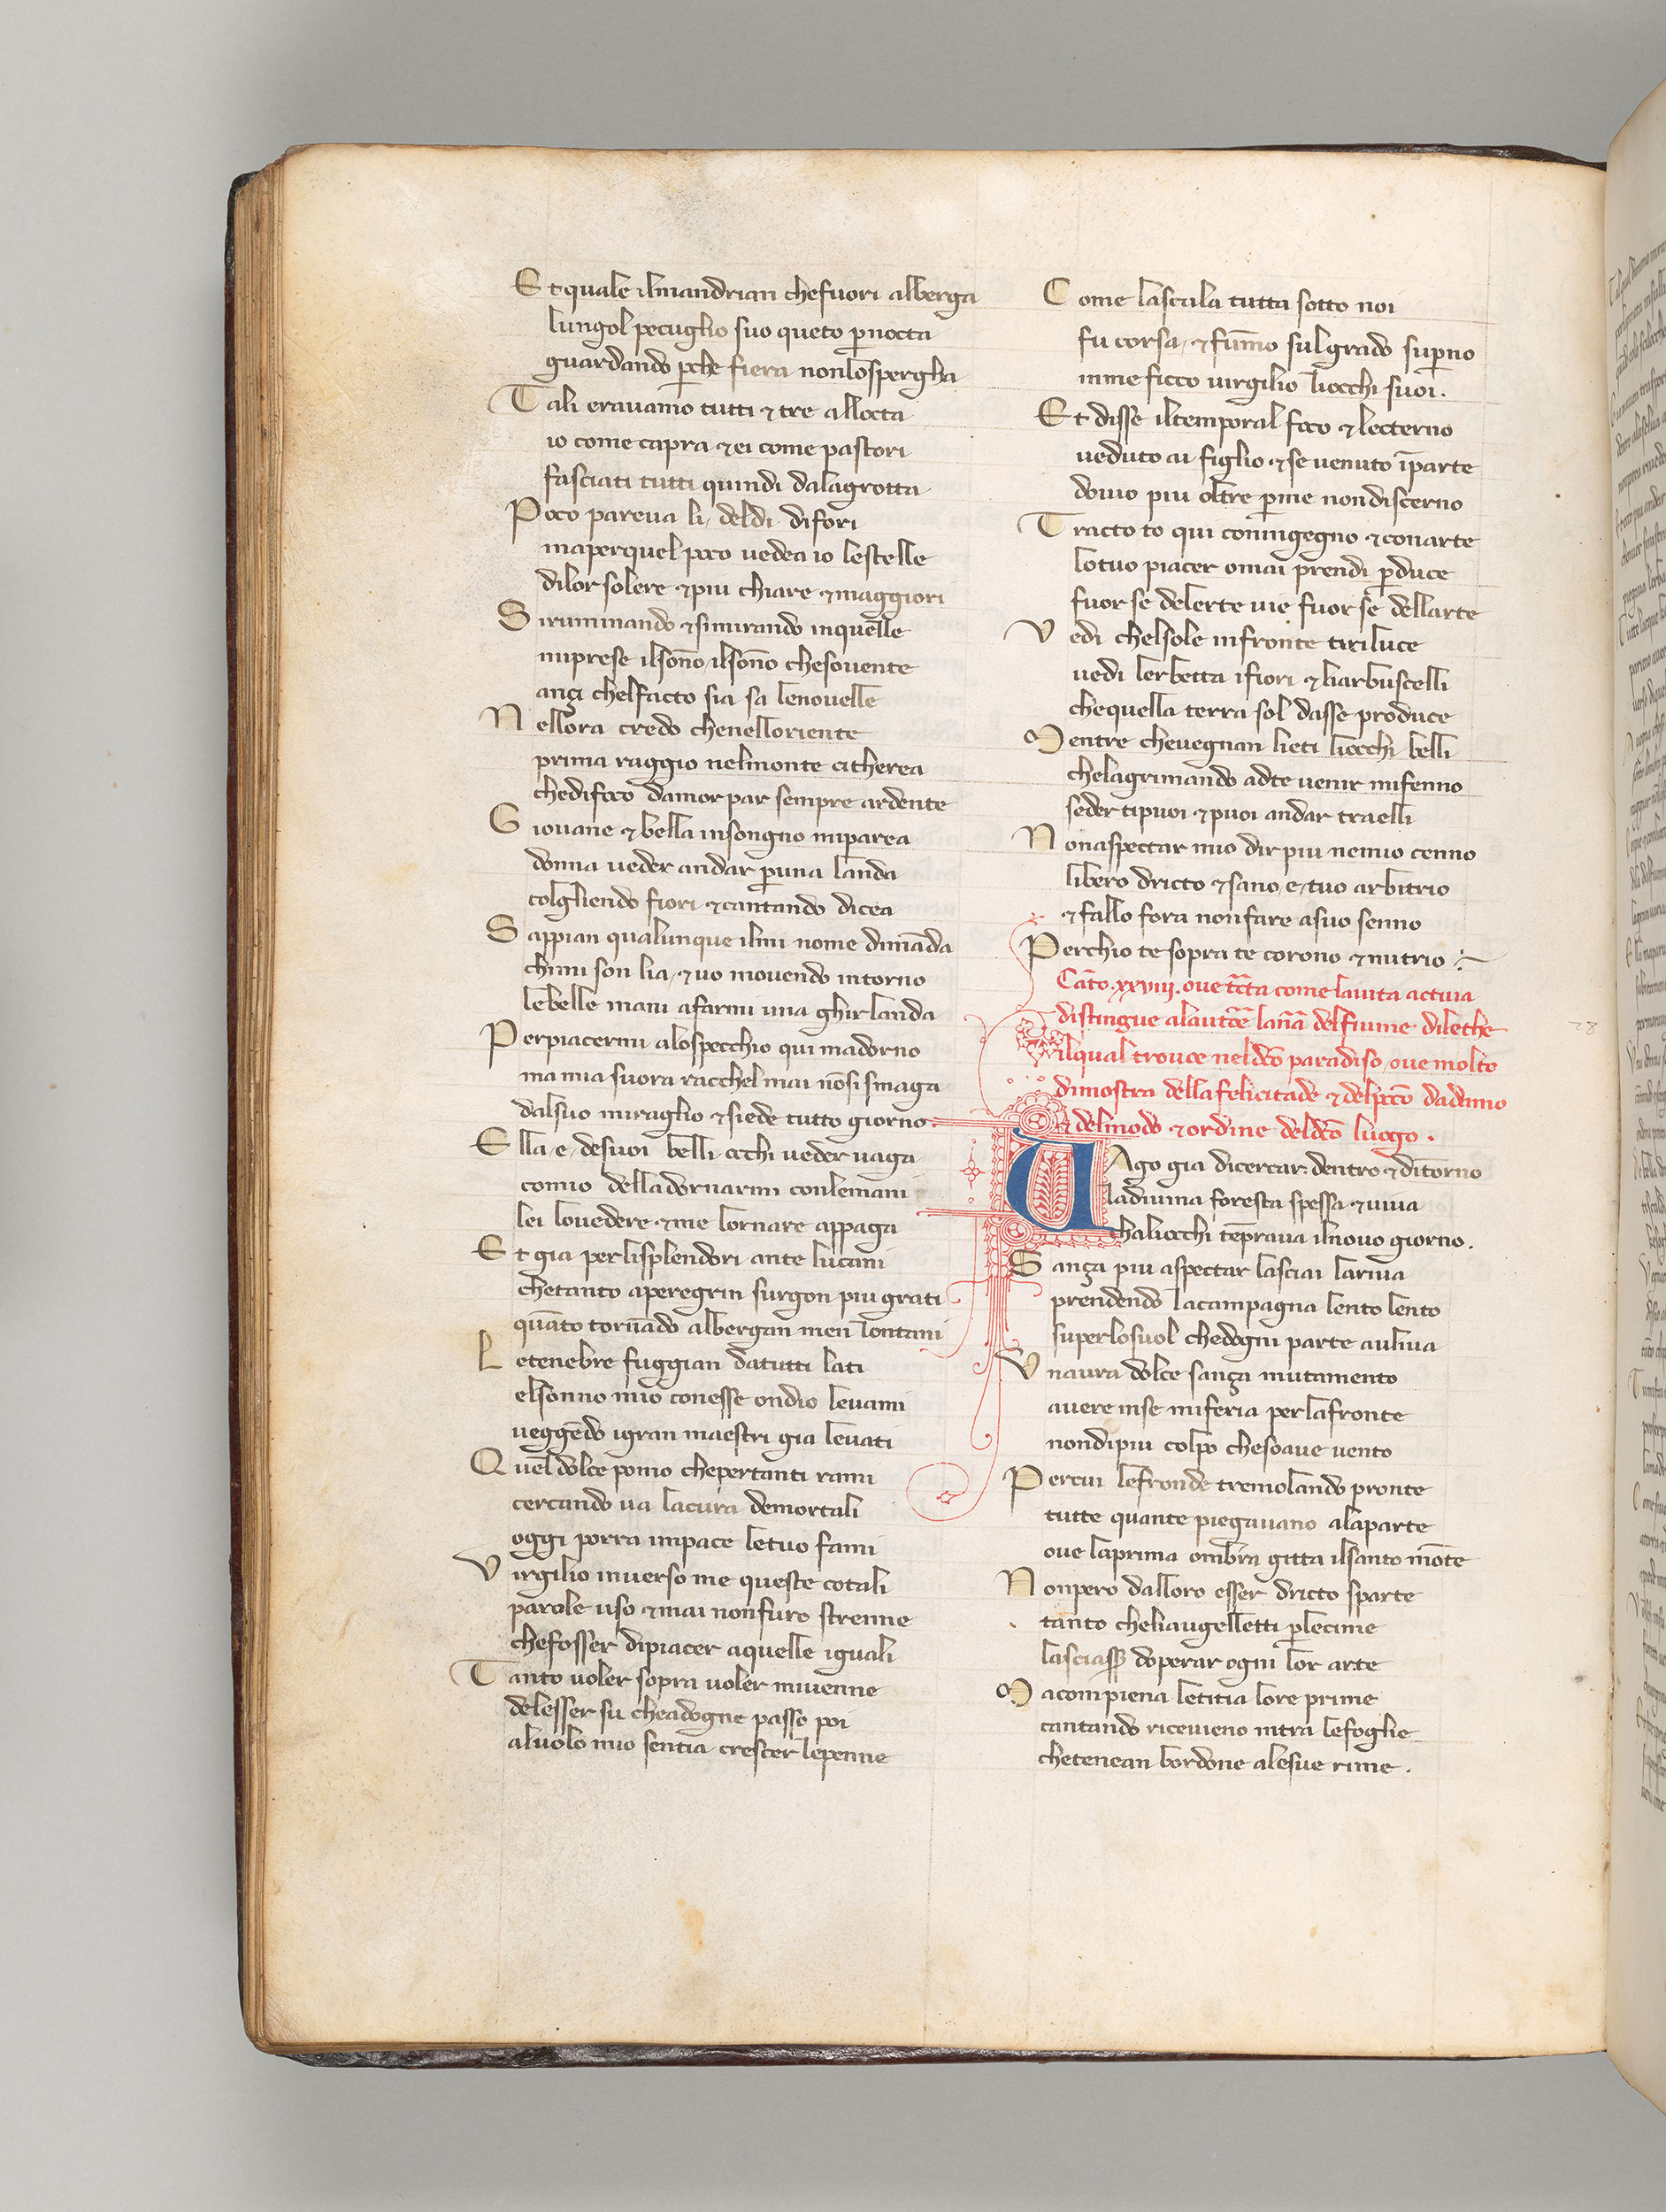 Et quale ilmandrian chefuori alberga
lungol pecuglio suo queto pnocta
guardando pche fiera nonlospergha
Tali eravamo tutti & tre allocta
io come capra & ei come pastori
fasciati tutti quindi dalagrotta
Poco pareua li, deldi difori
maperquel poco uedea io lestelle
dilor solere & piu chiare & maggiori
Si ruminando & simirando inquelle
miprese ilsõno, ilsõno chesouente
ançi chelfacto sia sa lenouelle
Nellora credo chenelloriente
prima raggio nelmonte citherea
chedifoco damor par sempre ardente
Giouane & bella insongno miparea
donna ueder andar puna landa
colgliendo fiori & cantando dicea
Sappian qualunque ilmi nome dimãda
chimi son lia, & uo mouendo intorno
lebelle mani afarmi una ghirlanda
Perpiacermi alospecchio qui madorno
ma mia suora racchel mai nõsi smaga
dalsuo miraglio & siede tutto giorno.
Ella, e, desuoi belli occhi ueder uaga
comio delladornarmi conlemani
lei louedere & me lornare appaga
Et gia per lisplendori ante lucani
chetanto aperegrin surgon piu grati
quãto tornãdo albergan men lontani
Letenebre fuggian datutti lati
elsonno mio conesse ondio leuami
ueggẽdo igran maestri gia leuati
Quel dolce pomo chepertanti rami
cercando ua lacura demortali
oggi porra inpace letuo fami
Virgilio inuerso me queste cotali
parole uso & mai nonfuro strenne
chefosser dipiacer aquelle iguali
Tanto uoler sopra uoler miuenne
delesser su cheadogne passo poi
aluolo mio sentia crescer lepenne
Come lascala tutta sotto noi
fu corsa, & fũmo sul grado supno
inme ficco uirgilio liocchi suoi.
Et disse iltemporal foco & lecterno
ueduto ai figlio & se uenuto ĩparte
douio piu oltre pme nondiscerno
Tracto to qui coningegno & conarte
lotuo piacer omai prendi pduce
fuor se delerte uie fuor se dellarte
Vedi chelsole infronte tiriluce
uedi lerbetta ifiori & liarbuscelli
chequella terra sol dasse produce
Mentre cheuegnan lieti liocchi belli
chelagrimando adte uenir mifenno
seder tipuoi & puoi andar traelli
Nonaspectar mio dir piu nemio cenno
libero dricto & sano, e, tuo arbitrio
& fallo fora nonfare asuo senno
Perchio te sopra te corono & mitrio
Cãto .xxviij. oue tcta come lauita actiua
distingue alautce lanã delfiume dilethe
ilqual trouce nel dco paradiso, oue molto
dimostra della felicitade & delpcco dadamo
& delmodo & ordine deldco luogo.
VAgo gia dicercar dentro & ditorno
ladiuina foresta spessa & uiua
chaliocchi tẽpraua ilnouo giorno.
Sança piu aspectar lasciai lariua
prendendo lacampagna lento lento
superlosuol chedogni parte auliua
Vnaura dolce sança mutamento
auere inse miferia perlafronte
nondipiu colpo chesoaue uento
Percui lefronde tremolando pronte
tutte quante piegauano alaparte
oue laprima ombra gitta ilsanto mõte
Nonpero dalloro esser dricto sparte
tanto cheliaugelletti plecime
lasciasser doperar ogni lor arte
Macompiena letitia lore prime
cantando riceuieno intra lefoglie
chetenean bordone alesue rime.
28